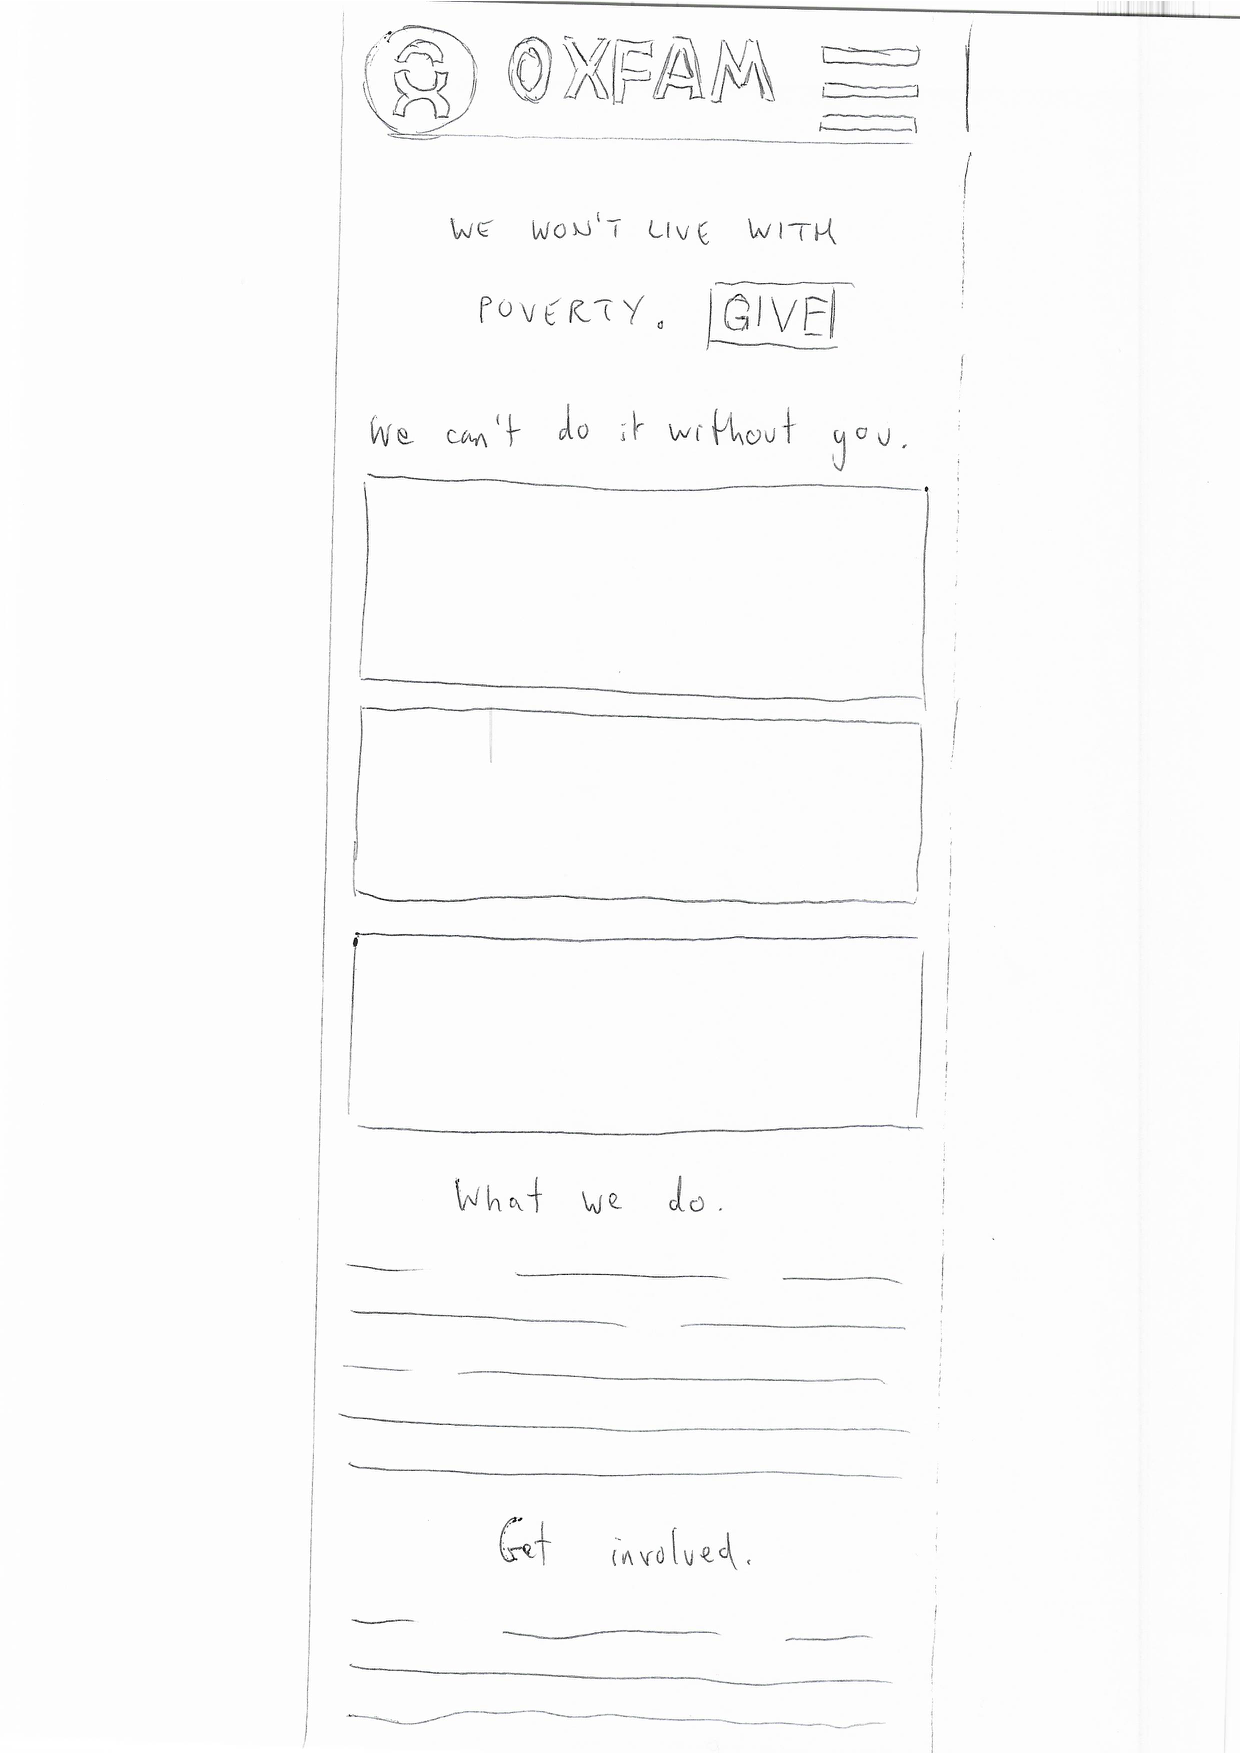 OXFAM
WE WON'T LIVE WITH
POVERTY. GIVE
We can't do it without you.
What we do.
Get involved.